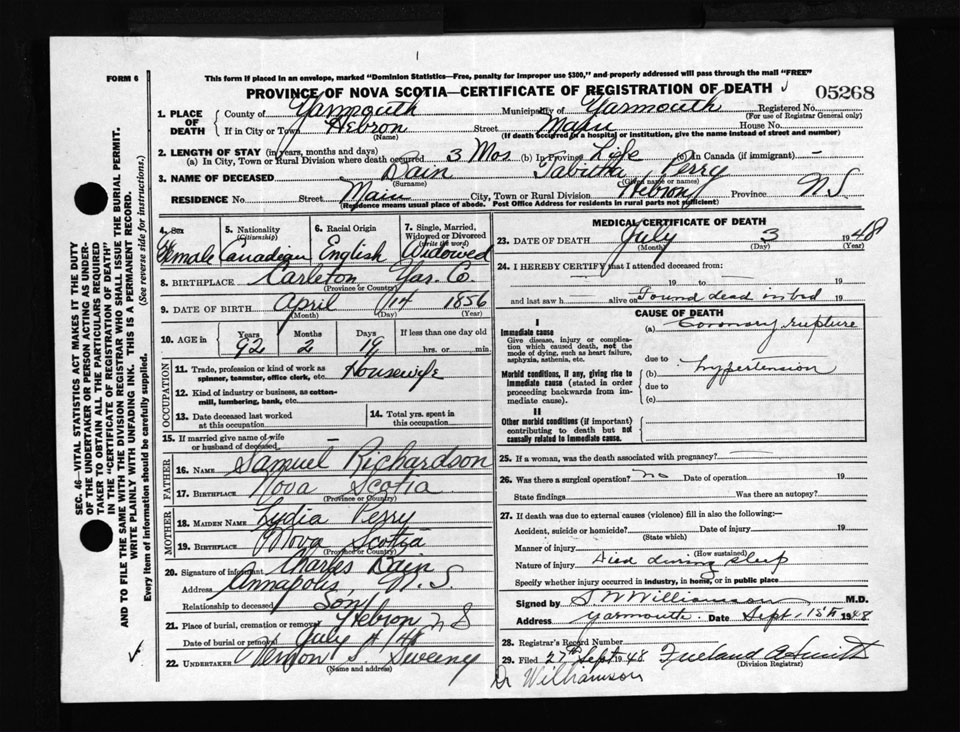 FORM 6
This form if placed in an envelope, marked "Dominion Statistics—Free, penalty for improper use $300," and properly addressed will pass through the mail "FREE"
PROVINCE OF NOVA SCOTIA—CERTIFICATE OF REGISTRATION OF DEATH
05268
1. PLACE OF DEATH
County of Yarmouth Municipality of Yarmouth Registered No.
(For use of Registrar General only)
If in City or Town Hebron Street Main House No.
(Name) (If death occurred in a hospital or institution, give the name instead of street and number)
2. LENGTH OF STAY (in years, months and days)
(a) In City, Town or Rural Division where death occurred 3 Mos (b) In Province Life (c) In Canada (if immigrant) -
3. NAME OF DECEASED Dain Tabitha Perry
(Surname) (Given name or names)
RESIDENCE No. Street Main City, Town or Rural Division Hebron Province N.S
(Residence means usual place of abode. Post Office Address for residents in rural parts not sufficient)
SEC. 46—VITAL STATISTICS ACT MAKES IT THE DUTY
OF THE UNDERTAKER OR PERSON ACTING AS UNDER-
TAKER TO OBTAIN ALL THE PARTICULARS REQUIRED
IN THE "CERTIFICATE OF REGISTRATION OF DEATH"
AND TO FILE THE SAME WITH THE DIVISION REGISTRAR WHO SHALL ISSUE THE BURIAL PERMIT.
WRITE PLAINLY WITH UNFADING INK. THIS IS A PERMANENT RECORD.
Every item of information should be carefully supplied. (See reverse side for instructions.)
4. Sex
Female
5. Nationality
(Citizenship)
Canadian
6. Racial Origin
English
7. Single, Married, Widowed or Divorced
(write the word)
Widowed
8. BIRTHPLACE Carleton Yar. Co.
(Province or Country)
9. DATE OF BIRTH April 14 1856
(Month) (Day) (Year)
10. AGE in
Years Months Days If less than one day old
92 2 19 hrs. or min.
OCCUPATION
11. Trade, profession or kind of work as Housewife
spinner, teamster, office clerk, etc.
12. Kind of industry or business, as cotton-
mill, lumbering, bank, etc.
13. Date deceased last worked
at this occupation
14. Total yrs. spent in
this occupation
15. If married give name of wife
or husband of deceased -
FATHER
16. NAME Samuel Richardson
17. BIRTHPLACE Nova Scotia
(Province or Country)
MOTHER
18. MAIDEN NAME Lydia Perry
19. BIRTHPLACE Nova Scotia
(Province or Country)
20. Signature of informant Charles Dain
Address Annapolis, N.S.
Relationship to deceased Son
21. Place of burial, cremation or removal Hebron N S
Date of burial or removal July 4 48
22. UNDERTAKER Vernon S. Sweeny
(Name and address)
MEDICAL CERTIFICATE OF DEATH
23. DATE OF DEATH July 3 1948
(Month) (Day) (Year)
24. I HEREBY CERTIFY that I attended deceased from:
19 to 19
and last saw h alive on Found dead in bed 19
CAUSE OF DEATH
I
Immediate cause
Give disease, injury or complica-
tion which caused death, not the
mode of dying, such as heart failure,
asphyxia, asthenia, etc.
(a) Coronary rupture
due to
Morbid conditions, if any, giving rise to
immediate cause (stated in order
proceeding backwards from im-
mediate cause).
(b) hypertension
due to
(c)
II
Other morbid conditions (if important)
contributing to death but not
causally related to immediate cause.
25. If a woman, was the death associated with pregnancy? -
26. Was there a surgical operation? no Date of operation 19
State findings Was there an autopsy?
27. If death was due to external causes (violence) fill in also the following:—
Accident, suicide or homicide? Date of injury 19
(State which)
Manner of injury
(How sustained)
Nature of injury Died during sleep
Specify whether injury occurred in industry, in home, or in public place
Signed by S W Williamson M.D.
Address Yarmouth Date Sept. 15th 1948
28. Registrar's Record Number
29. Filed 27th Sept 1948
(Division Registrar)
Dr Williamson